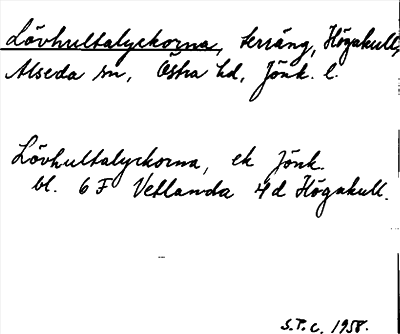 Lövhultalyckorna, terräng, Högakull,
Alseda sn, Östra hd, Jönk. l.
Lövhultalyckorna, ek Jönk.
bl. 6 F Vetlanda 4 d Högakull.
S.T.C. 1958.